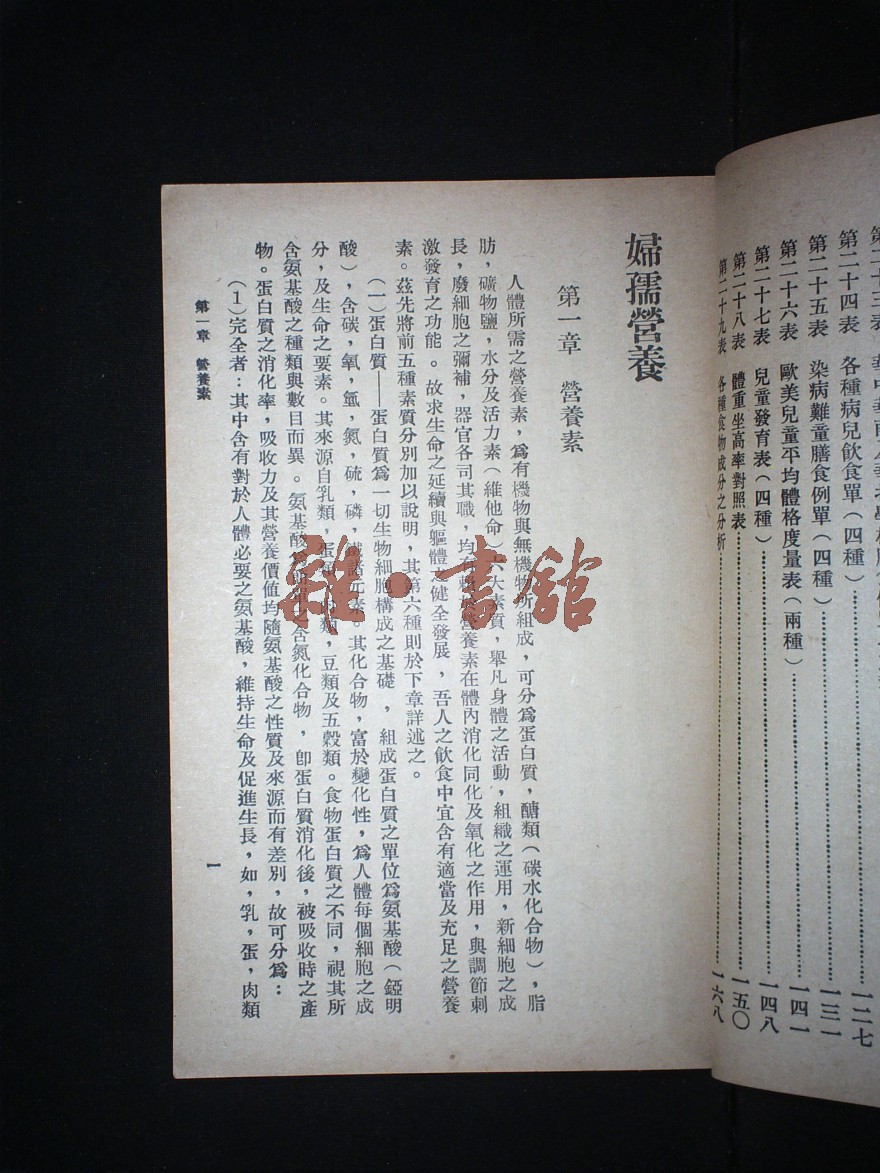 第二十四表 各種病兒飲食單（四種）……一二七
第二十五表 染病難童膳食例單（四種）……一三一
第二十六表 歐美兒童平均體格度量表（兩種）……一四一
第二十七表 兒童發育表（四種）……一四八
第二十八表 體重坐高率對照表……一五〇
第二十九表 各種食物成分之分析……一六八
婦孺營養
第一章 營養素
人體所需之營養素，爲有機物與無機物所組成，可分爲蛋白質，醣類（碳水化合物），脂
肪，礦物鹽，水分及活力素（維他命）六大素質，舉凡身體之活動，組織之運用，新細胞之成
長，廢細胞之彌補，器官各司其職，均有賴於營養素在體內消化同化及氧化之作用，與調節刺
激發育之功能。故求生命之延續與軀體之健全發展，吾人之飲食中宜含有適當及充足之營養
素。茲先將前五種素質分別加以說明，其第六種則於下章詳述之。
（一）蛋白質——蛋白質爲一切生物細胞構成之基礎，組成蛋白質之單位爲氨基酸（錏明
酸），含碳，氧，氫，氮，硫，磷，鐵諸元素，其化合物，富於變化性，爲人體每個細胞之成
分，及生命之要素。其來源自乳類，蛋類，肉類，豆類及五穀類。食物蛋白質之不同，視其所
含氨基酸之種類與數目而異。氨基酸爲之含氮化合物，卽蛋白質消化後，被吸收時之產
物。蛋白質之消化率，吸收力及其營養價值均隨氨基酸之性質及來源而有差別，故可分爲：
（1）完全者：其中含有對於人體必要之氨基酸，維持生命及促進生長，如，乳，蛋，肉類
第一章 營養素
一
雜·書館